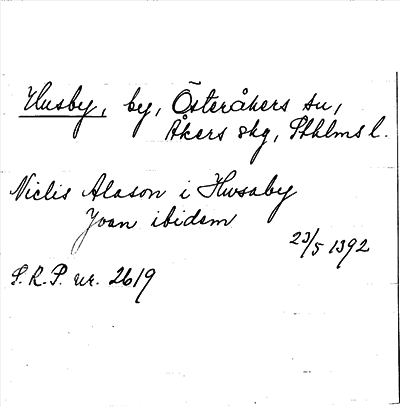 Husby, by, Österåkers sn,
Åkers skg, Sthlms l.
Niclis Alason i Hwsaby
Joan ibidem
23/5 1392
S.R.P. nr. 2619